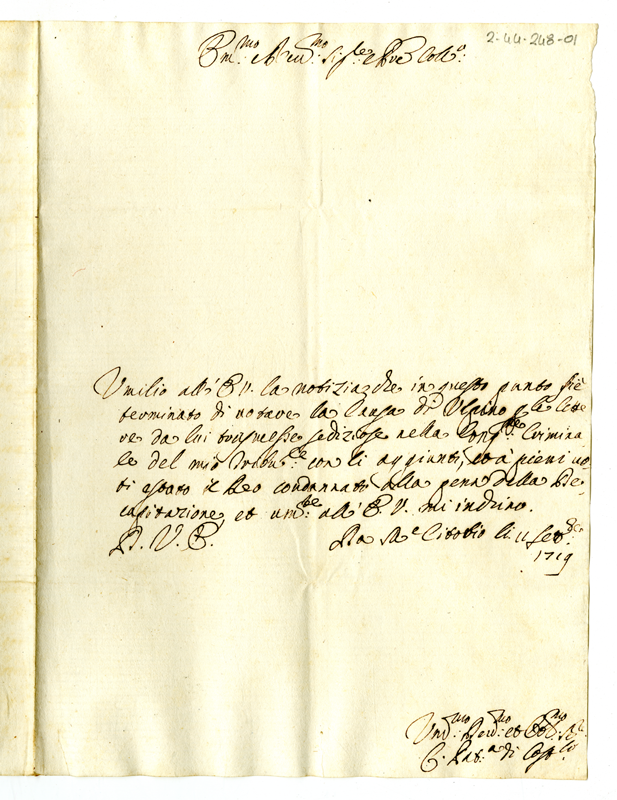 2-44-248-01
Em.mo e Rev.mo Sig.re e Pne Coll.o
Umilio all' E. V. la notizia, che in questo punto si è
terminato di votare la Causa di Volpino p le lette
re da lui trasmesse sediziose nella Cong.ne Crimina
le del mio Tribu.le con li aggiunti, et à pieni vo-
ti è stato il Reo condannato alla pena della De-
capitazione, et um.te all' E. V. mi inchino.
D. V. E. Da M.e Citorio li 11 Sett.bre
1719
Um.mo Dev.mo et Obb.mo